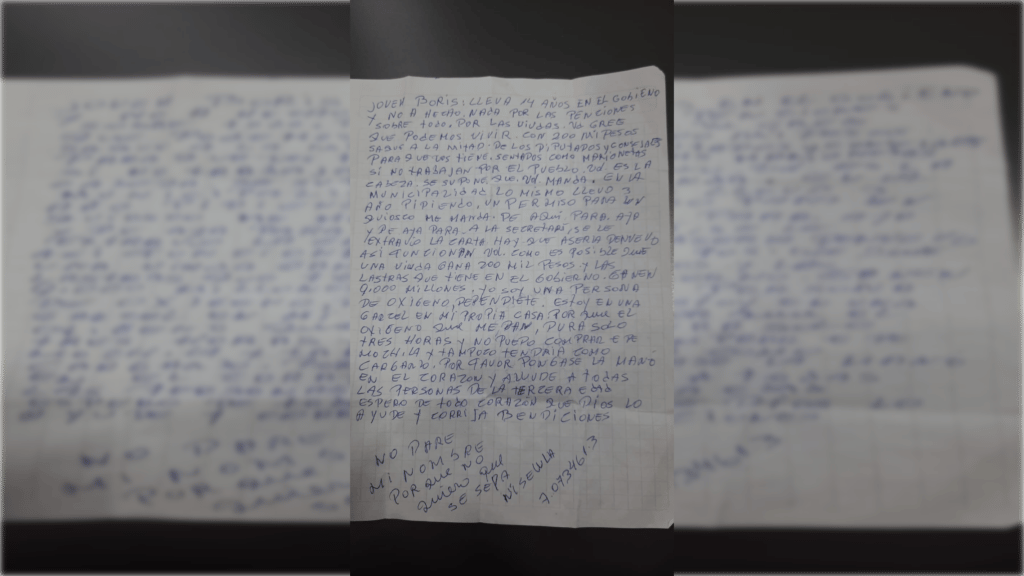 JOVEN BORIS: LLEVA 14 AÑOS EN EL GOBIENO
Y NO A HECHO, NADA POR LAS PENCIONES
SOBRE TODO, POR LAS VIUDAS. Vd CREE
QUE PODEMOS VIVIR. CON 200 MIL PESOS
SAQUE A LA MITAD. DE LOS DIPUTADOS Y
PARA QUE LOS TIENE. SENTADOS COMO MARIONETAS
SI NO TRABAJAN POR EL PUEBLO. Vd. ES LA
CABEZA. SE SUPONE. QUE. Vd. MANDA. EN LA
MUNICIPALIDAD. LO MISMO LLEVO
AÑO PIDIENDO, UN PERMISO PARA UN
QUIOSCO ME MANDA. DE AQUI PARA. AJA
Y DE AJA PARA. A LA SECRETARI, SE LE
EXTRAVIO LA CARTA HAY QUE ASERLA DENUEVO
ASI FUNCIONAN Vd. COMO ES POSIBLE QUE
UNA VIUDA GANA 200 MIL PESOS Y LAS
LASTRAS QUE TENE EN EL GOBIERNO. GANEN
9.000 MILLONES. YO SOY UNA PERSONA
DE OXIGENO, DEPENDIETE. ESTOY EN UNA
CARCEL EN MI PROPIA CASA POR QUE EL
OXIGENO QUE ME DAN, DURA SOLO
TRES HORAS Y NO PUEDO COMPRAR E DE
MOCHILA Y TAMPOCO TENDRIA COMO
CARGARLO. POR FAVOR PONGASE LA MANO
EN EL CORAZON Y AYUDE A TODAS
LAS PERSONAS DE LA TERCERA EDAD
ESPERO DE TODO CORAZON QUE DIOS LO
AYUDE Y CORRIJA BENDICIONES
NO DARE
MI NOMBRE
POR QUE NO
QUIERO QUE
SE SEPA
MI
70734613